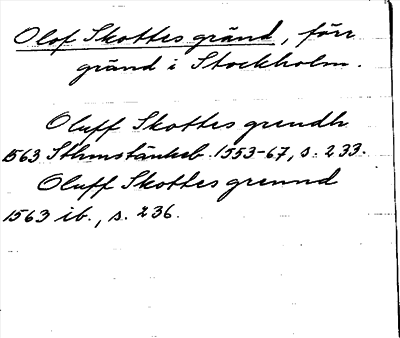 Olof Skottes gränd, förr
gränd i Stockholm.
Oluff Skottes grendh
1563 Sthmstänkeb. 1553-67, s. 233.
Oluff Skottes grennd
1563 ib., s. 236.